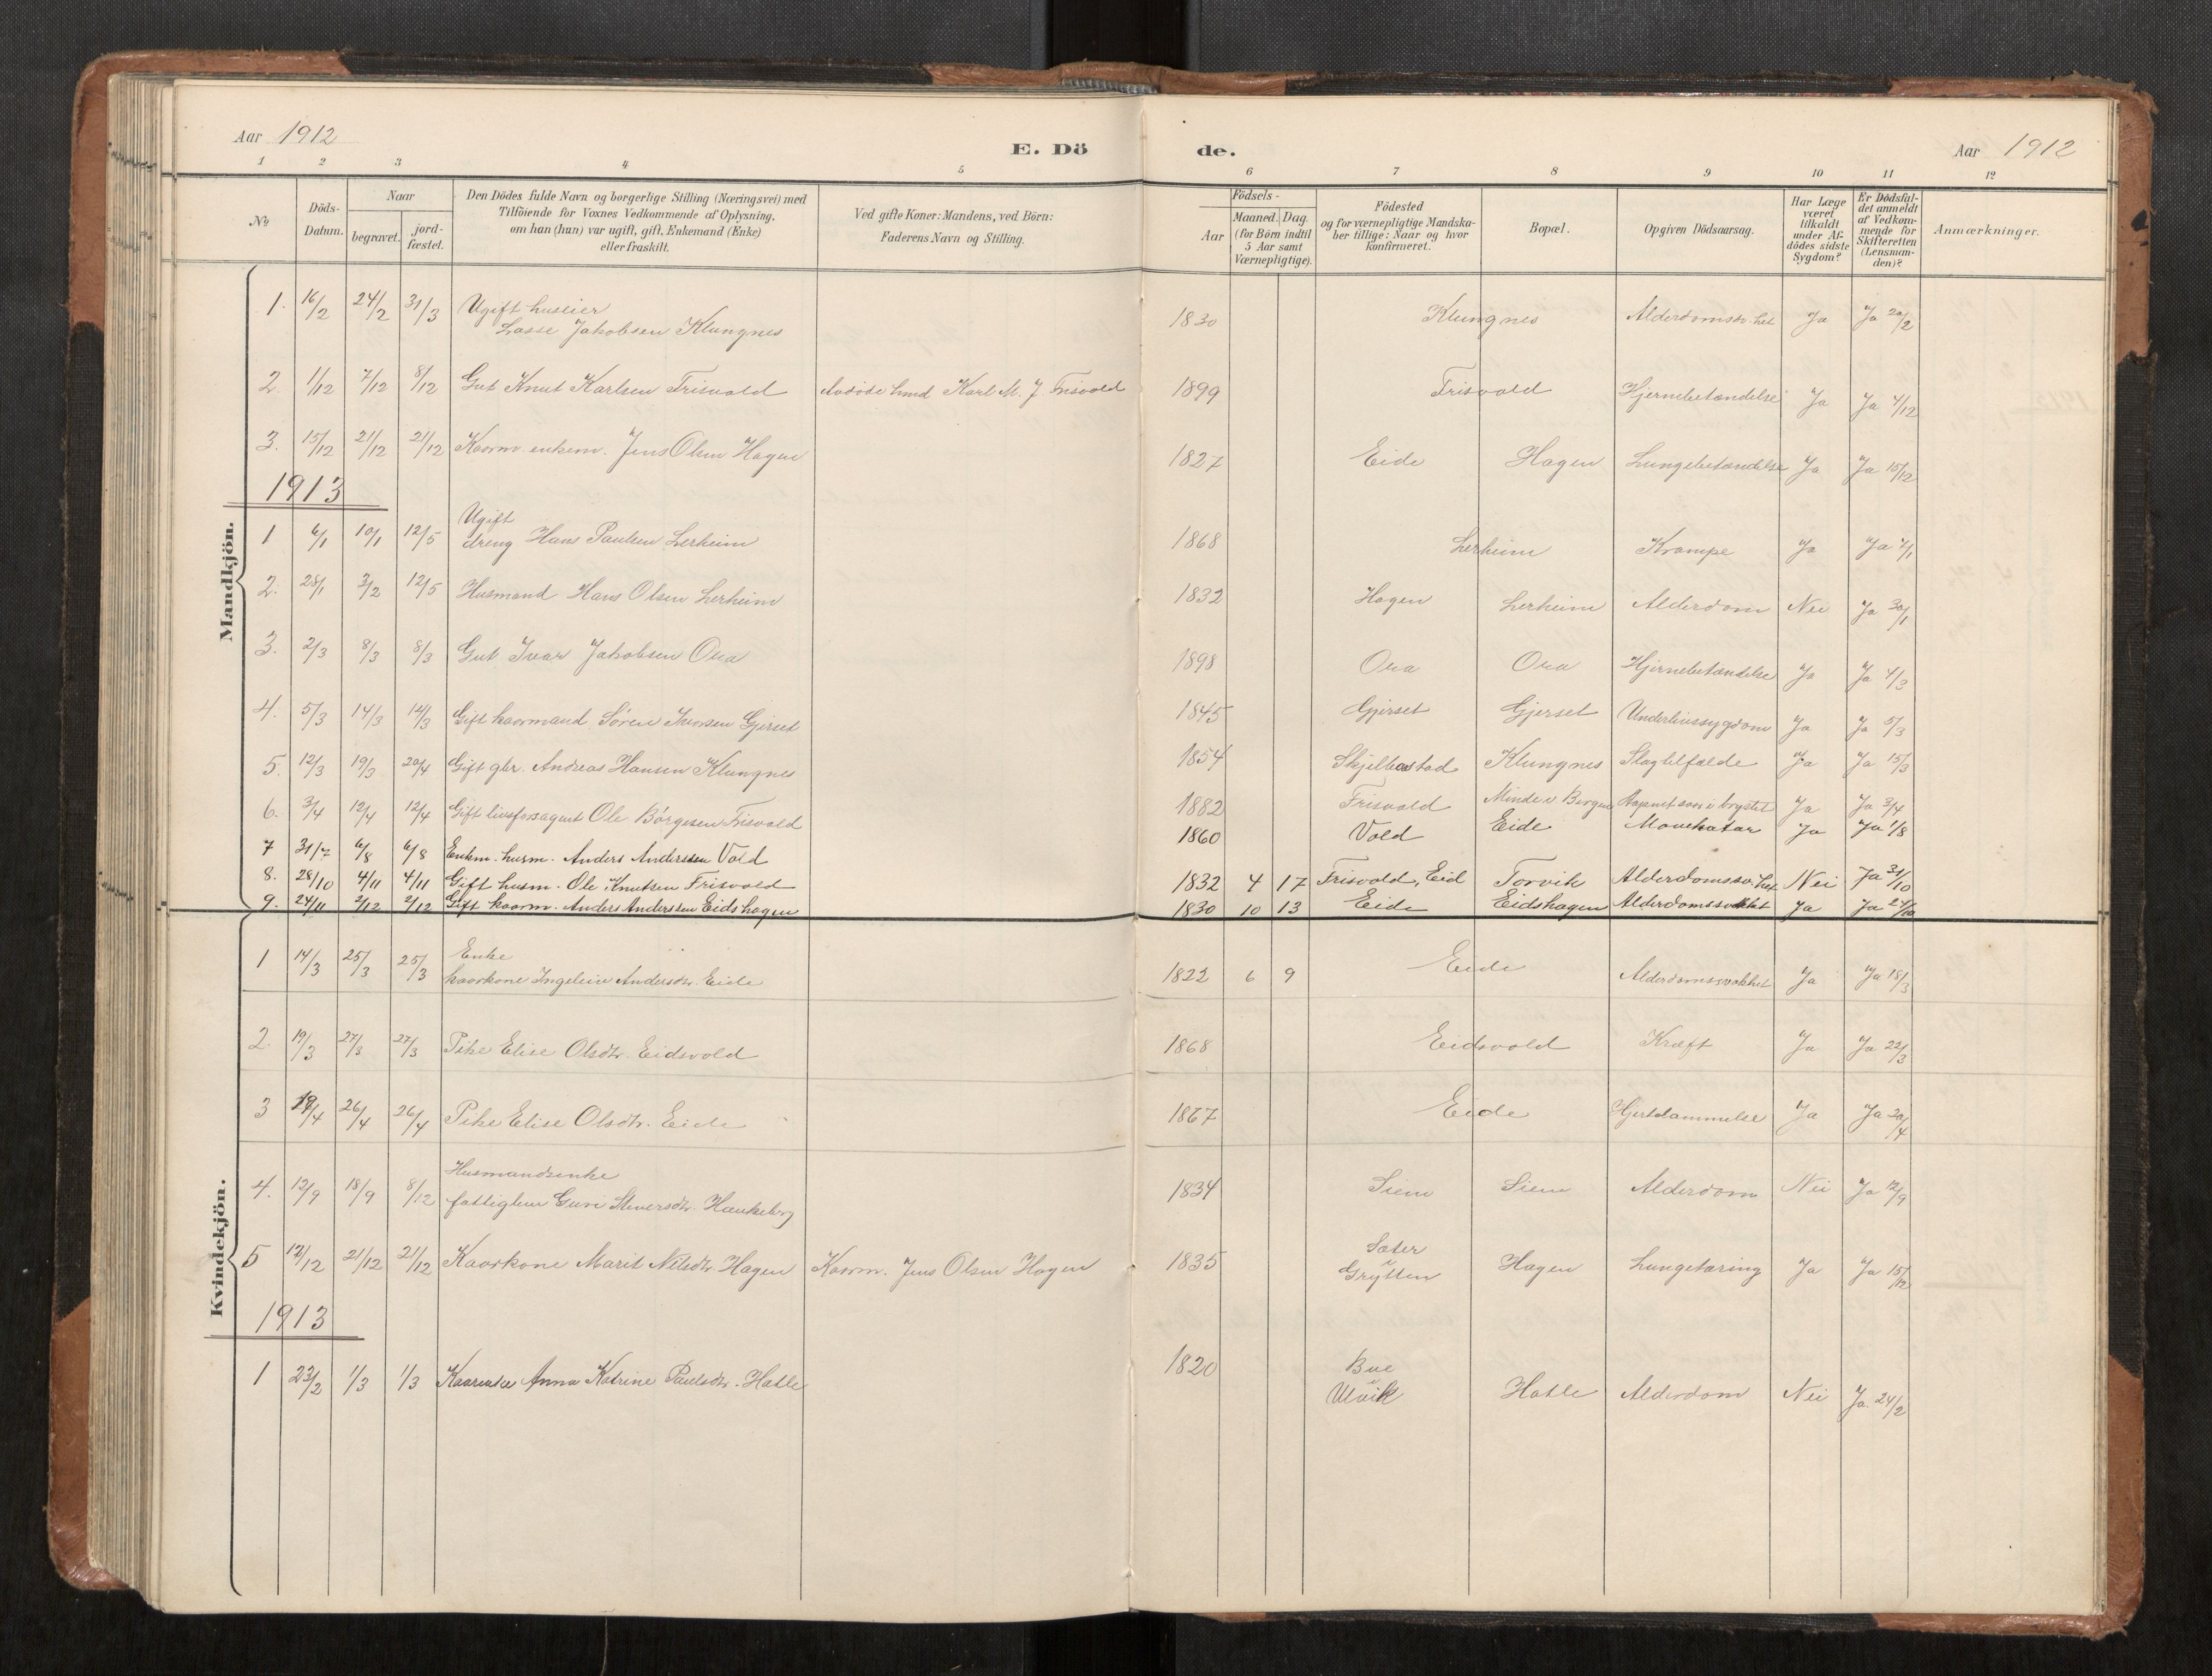 Aar 1912 E. Dö de. Aar 1912
1 2 3 4 5 6 7 8 9 10 11 12
№
Döds-Datum.
Naar
begravet.
jord-fæstet.
Den Dödes fulde Navn og borgerlige Stilling (Næringsvei) med
Tilföiende for Voxnes Vedkommende af Oplysning,
om han (hun) var ugift, gift, Enkemand (Enke)
eller fraskilt.
Ved gifte Koner: Mandens, ved Börn:
Faderens Navn og Stilling.
Födsels-
Aar
Maaned. Dag.
(for Börn indtil
5 Aar samt
Værnepligtige).
Födested
og for værnepligtige Mandska-
ber tillige: Naar og hvor
konfirmeret.
Bopæl.
Opgiven Dödsaarsag.
Har Læge
været
tilkaldt
under Af-
dödes sidste
Sygdom?
Er Dødsfal-
det anmeldt
af Vedkom-
mende for
Skifteretten
(Lensman-
den)?
Anmærkninger.
Mandkjön.
1. 16/2 24/2 31/3 Ugift huseier
Lasse Jakobsen Klungnes 1830 Klungnes Alderdomssv.het Ja Ja 20/2
2. 1/12 7/12 8/12 Gut Knut Karlsen Frisvold Karl M. J. Frisvold 1899 Frisvold Hjernebetændelse Ja Ja 4/12
3. 15/12 21/12 21/12 Kaarm. enkem. Jens Olsen Hagen 1827 Eide Hagen Lungebetændelse Ja Ja 15/12
1913
1 6/1 10/1 12/5 Ugift
dreng Hans Paulsen Lerheim 1868 Lerheim Krampe Ja Ja 7/1
2. 28/1 3/2 12/5 Husmand Hans Olsen Lerheim 1832 Hagen Lerheim Alderdom Nei Ja 30/1
3. 2/3 8/3 8/3 Gut Ivar Jakobsen Ora 1898 Ora Ora Hjernebetændelse Ja Ja 4/3
4. 5/3 14/3 14/3 Gift kaarmand Sören Iversen Gjerset 1845 Gjerset Gjerset Underlivssygdom Ja Ja 5/3
5. 12/3 19/3 20/4 Gift gbr. Andreas Hansen Klungnes 1854 Skjelbostad Klungnes Slagtilfælde Ja Ja 15/3
6. 3/4 12/4 12/4 Gift livsforsagent Ole Börgesen Frisvold 1882 Frisvold Minde v. Bergen i brystet Ja Ja 3/4
7 31/7 6/8 6/8 Enkm. husm. Anders Anderssen Vold 1860 Vold Eide Mavekatar Ja Ja 1/8
8. 28/10 4/11 4/11 Gift husm. Ole Knutsen Frisvold 1832 4 17 Frisvold, Eid Torvik Alderdomssv.het Nei Ja 31/10
9. 24/11 2/12 2/12 Gift kaarm. Anders Anderssen Eidshagen 1830 10 13 Eide Eidshagen Alderdomssvakhet Ja Ja
Kvindekjön.
1 14/3 25/3 25/3 Enke
kaarkone Ingeleiv Andersdtr. Eide 1822 6 9 Eide Alderdomssvakhet Ja Ja 18/3
2. 19/3 27/3 27/3 Pike Elise Olsdtr. Eidsvold 1868 Eidsvold Kræft Ja Ja 22/3
3 19/4 26/4 26/4 Pike Elise Olsdtr. Eide 1867 Eide Hjertelammelse Ja Ja 20/4
4. 12/9 18/9 8/12 Husmandsenke
fattiglem Guri Steversdtr. Haukeberg 1834 Siem Siem Alderdom Nei Ja 12/9
5 12/12 21/12 21/12 Kaarkone Marit Nilsdtr. Hagen Kaarm. Jens Olsen Hagen 1835 Sæter
i
Grytten Hagen Lungetæring Ja Ja 15/12
1913
1 23/2 1/3 1/3 Kaarenke Anna Katrine Paulsdtr. Hatle 1820 Bue
i
Ulvik Hatle Alderdom Nei Ja 24/2